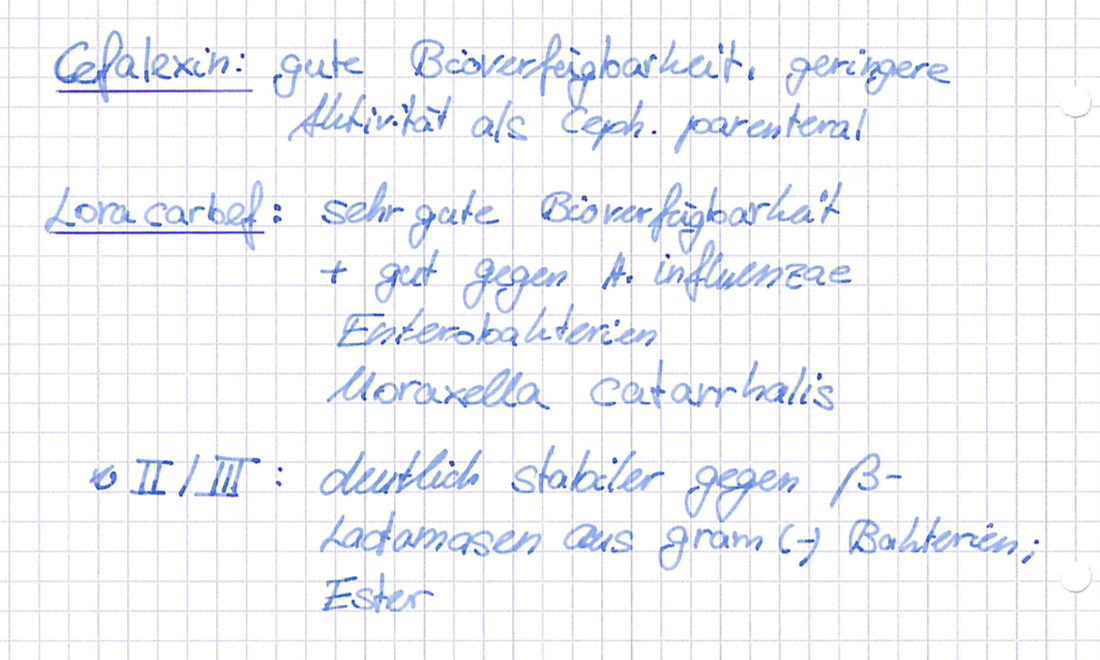 Cefalexin: gute Bioverfügbarkeit, geringere
Aktivität als Ceph. parenteral
Loracarbef: sehr gute Bioverfügbarkeit
+ gut gegen H. influenzae
Enterobakterien
Moraxella catarrhalis
II/III: deutlich stabiler gegen β-
Lactamasen aus gram (-) Bakterien;
Ester